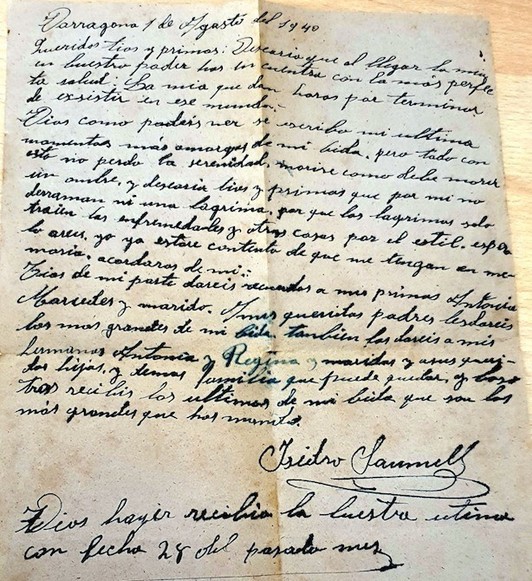 Tarragona 1 de Agosto del 1940
Queridos tios y primos: Desearia que al llegar la mia
en buestro poder hos encuentra con la más perfec
ta salud: La mia que dan horas por terminar
de exsistir en ese mundo.-
Tios como podeis ver se escribo mi ultima
momentos más amargos de mi bida, pero todo con
esto no perdo la serenidad, morire como debe morir
un ombre, y desearia tios y primos que por mi no
derraman ni una lagrima, por que las lagrimas solo
traien las enfermedades y otras cosas por el estil, espero
lo areis, yo ya estare contento de que me tengan en me
moria, acordaros de mi.-
Tios de mi parte dareis recuerdos a mis primas Antonia
Mercedes y marido. A mis queritos padres les dareis
los mas grandes de mi bida, tambien los dareis a mis
hermanas Antonia y Regina y maridos y a sus queri-
dos hijos, y demas familia que puede quedar, y boso
tros recibis los ultimos de mi bida que son los
más grandes que hos mando.
Isidro Saumell
Tios hayer recibia la buestra utima
con fecha 28 del pasado mes